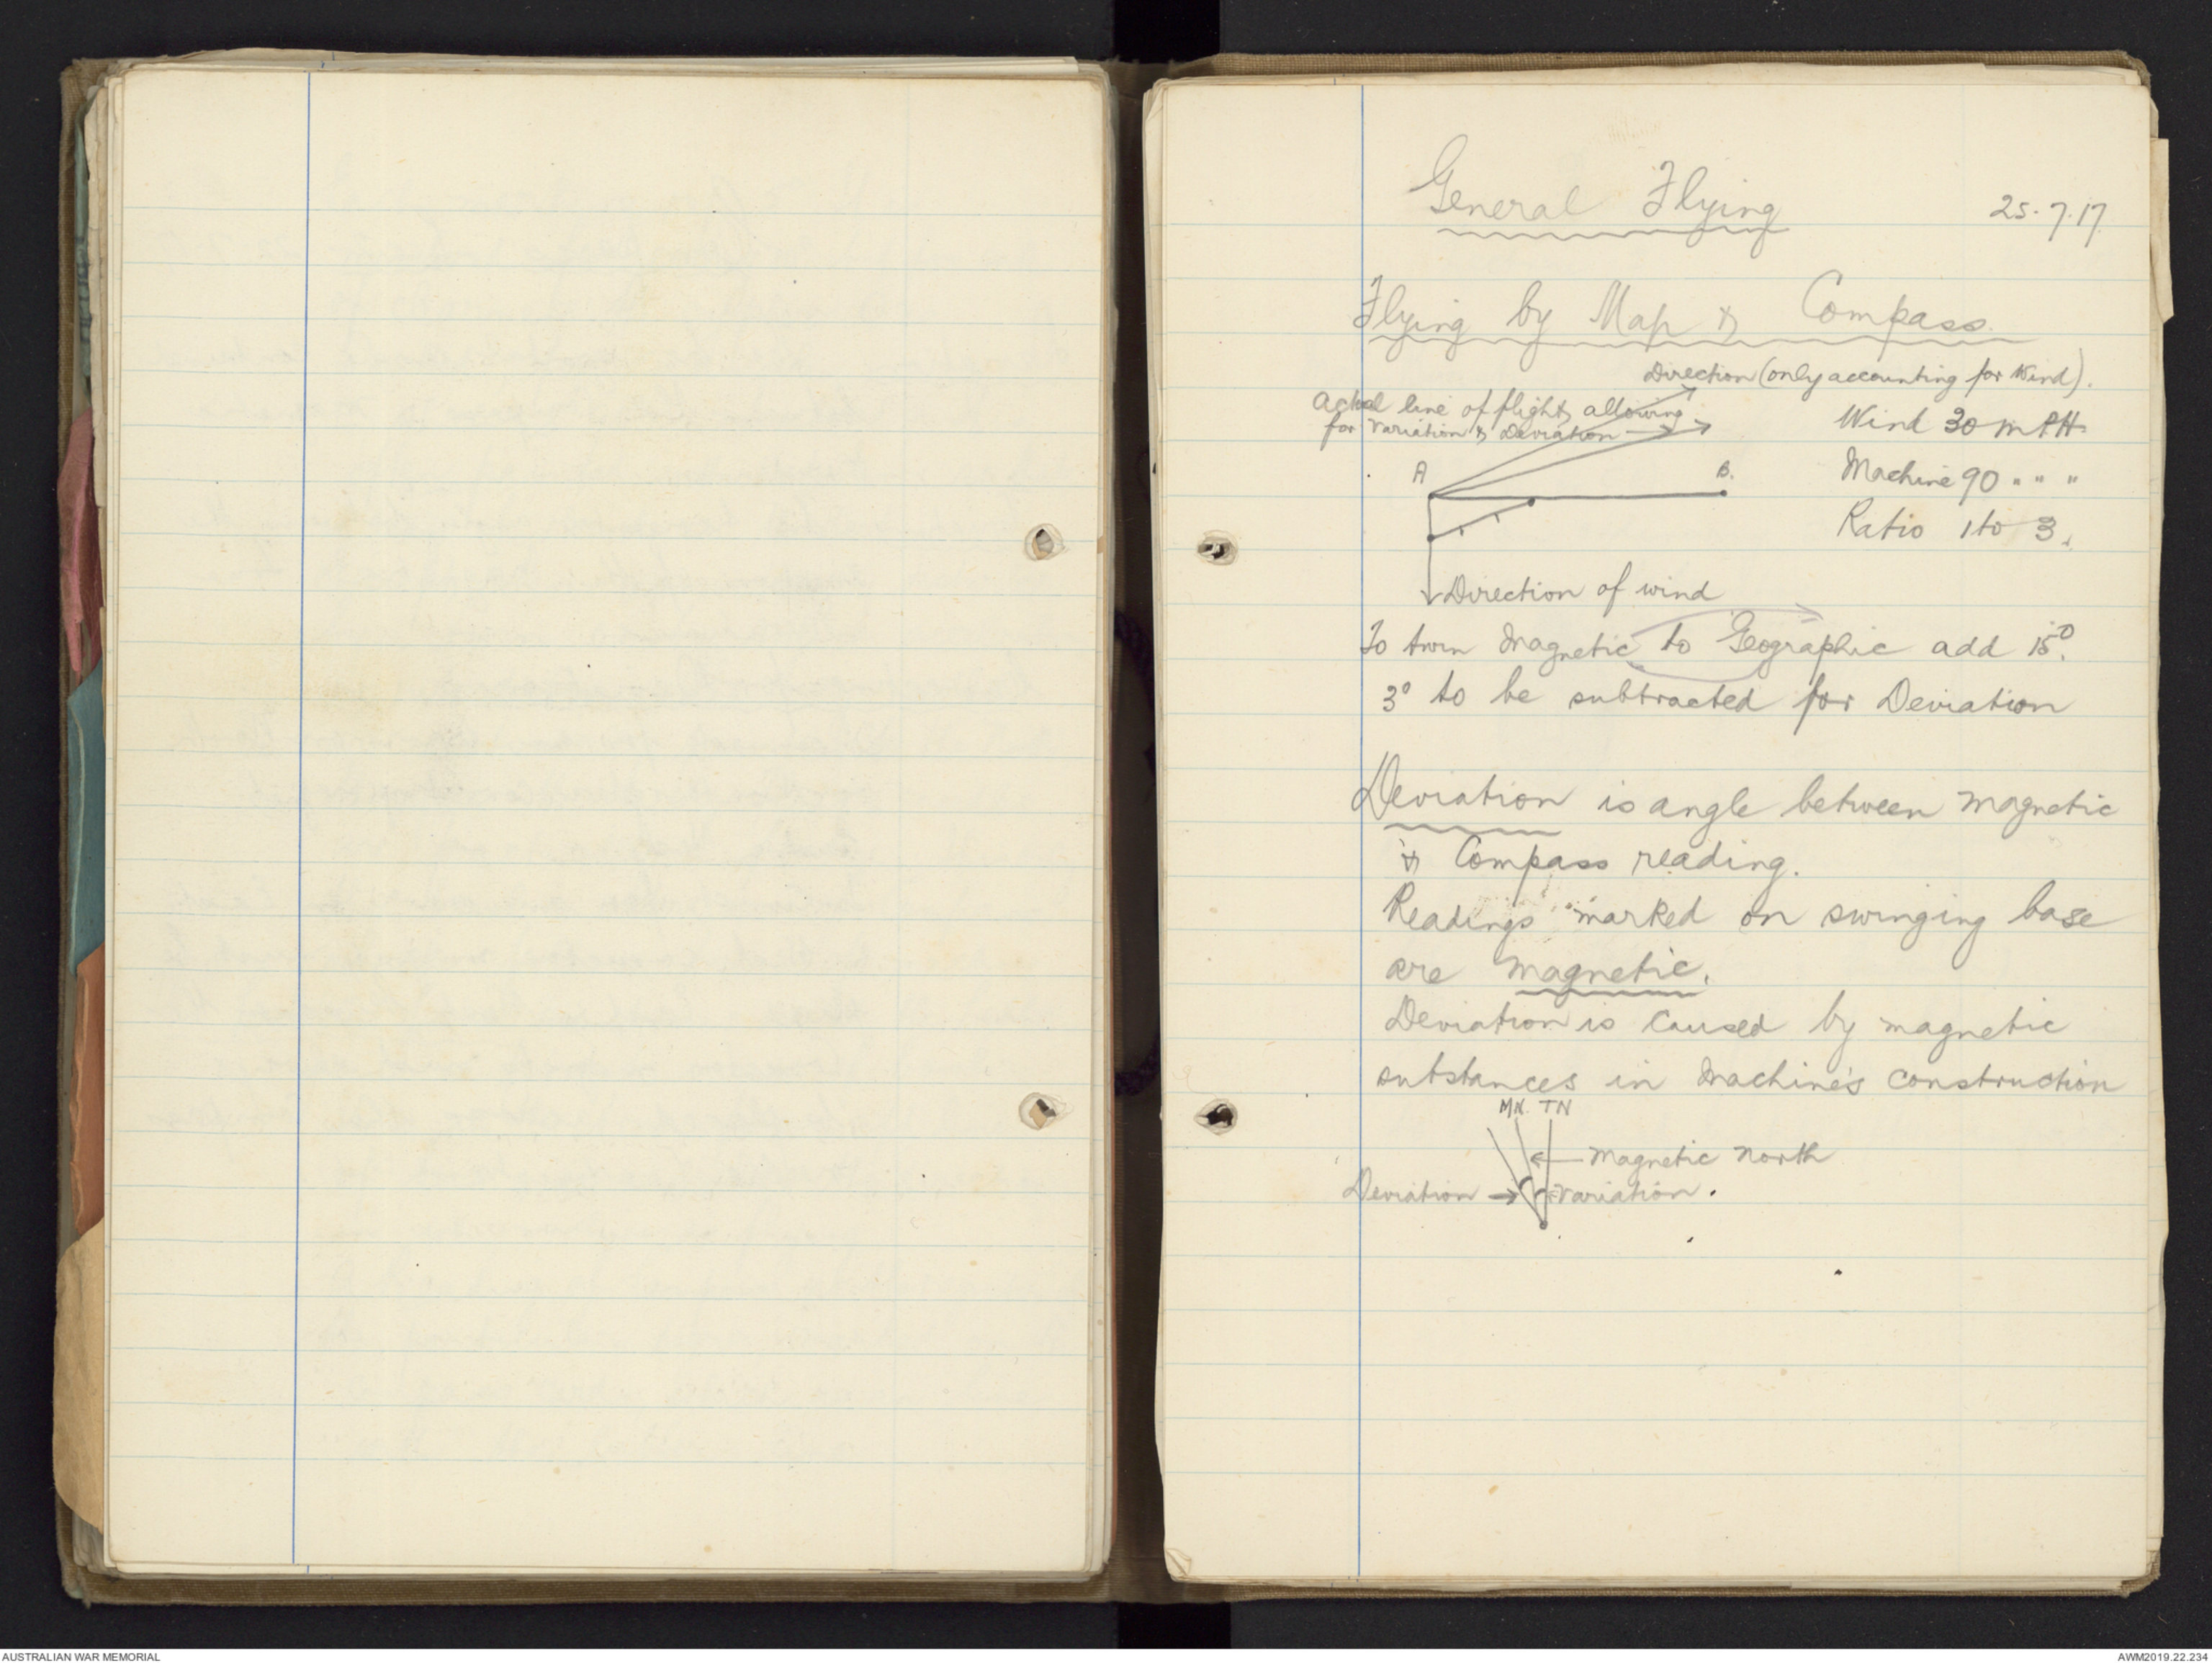 General Flying 25.7.17
Flying by Map & Compass.
Direction (only accounting for Wind).
Actual line of flight, allowing
for Variation & Deviation
Wind 30 MPH
A B.
Machine 90 " " "
Ratio 1 to 3.
Direction of wind
To turn Magnetic to Geographic add 15°.
3° to be subtracted for Deviation
Deviation is angle between magnetic
& Compass reading.
Readings marked on swinging base
are magnetic.
Deviation is caused by magnetic
substances in Machine's construction
MN. TN
Magnetic North
Deviation Variation.
AUSTRALIAN WAR MEMORIAL AWM2019.22.234